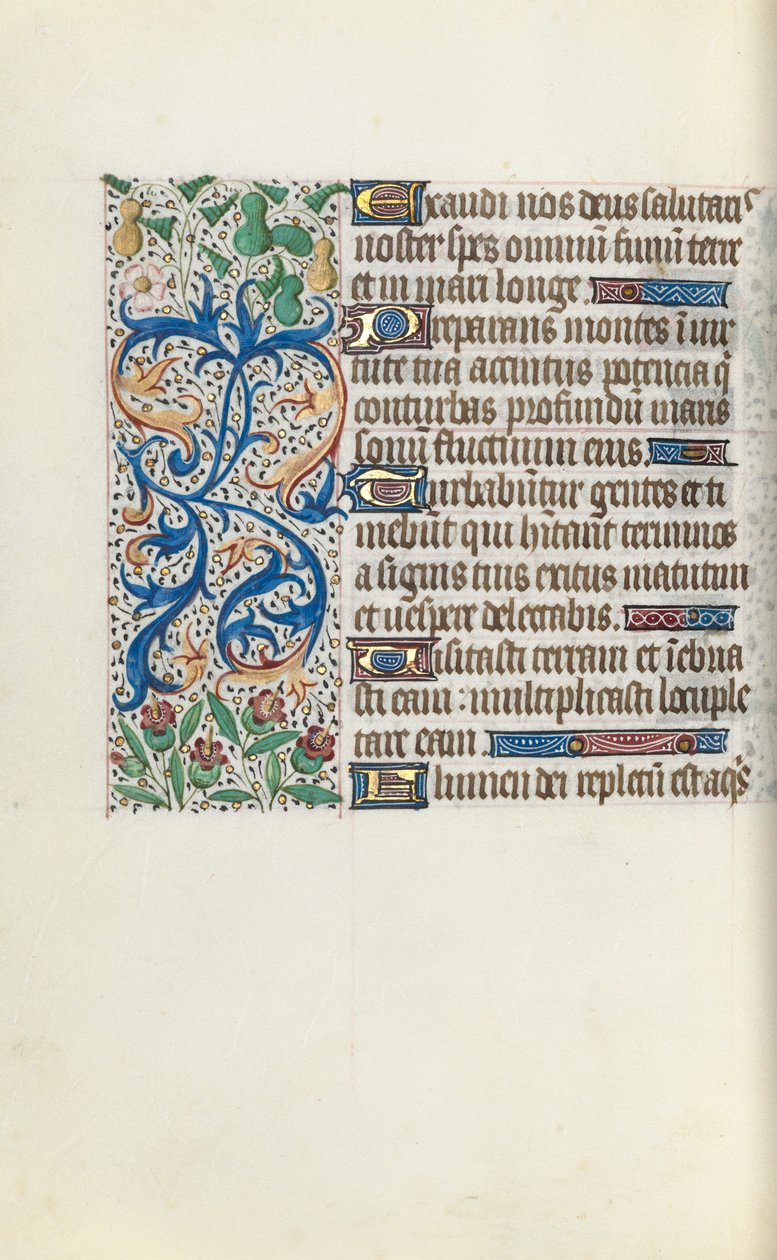 Exaudi nos deus salutaris
noster spes omniū finiū terre
et in mari longe.
Preparans montes ī uir
tute tua accinctus potencia q̄
conturbas profundū maris
sonū fluctiuum eius.
Turbabūtur gentes et ti
mebūt qui hītant terminos
a signis tuis exitus matutini
et uespere delectabis.
Uisitasti terram et īebria
sti eam: multiplicasti locuple
tare eam.
Flumen dei repletū est aq̄s